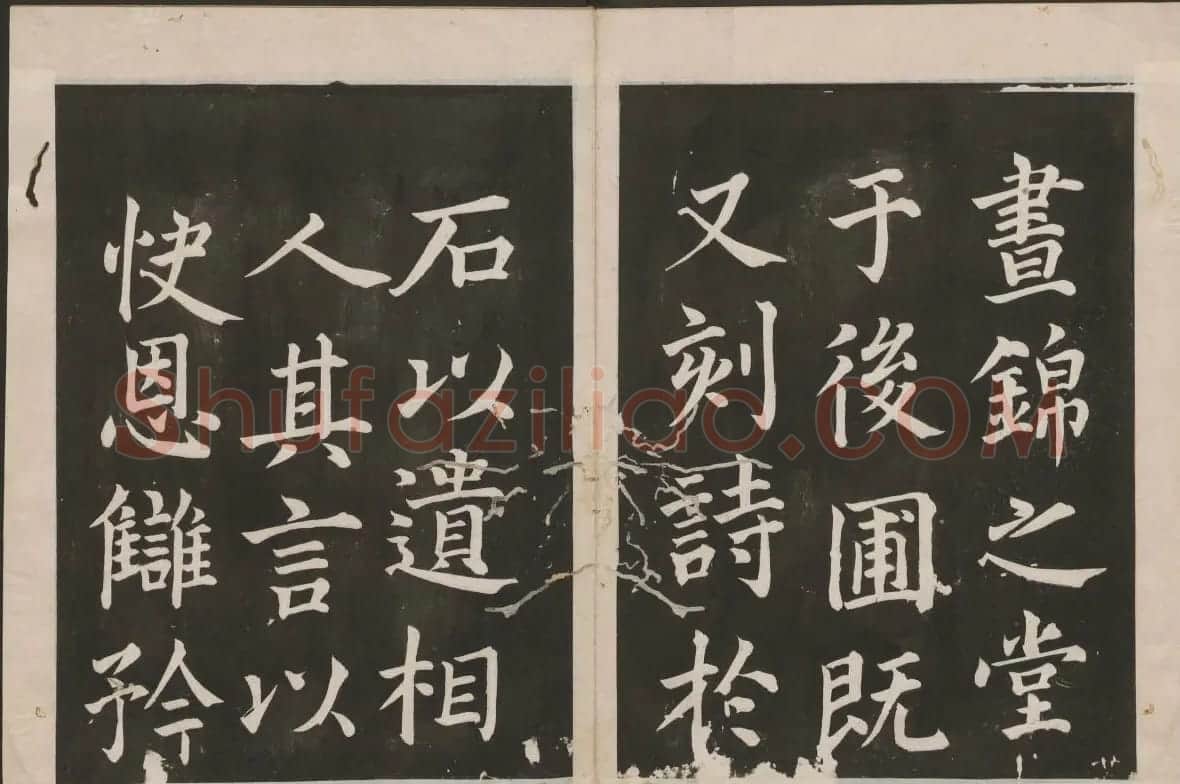 晝錦之堂
于後圃既
又刻詩於
石以遺相
人其言以
快恩讎矜
Shufaziliao.COM